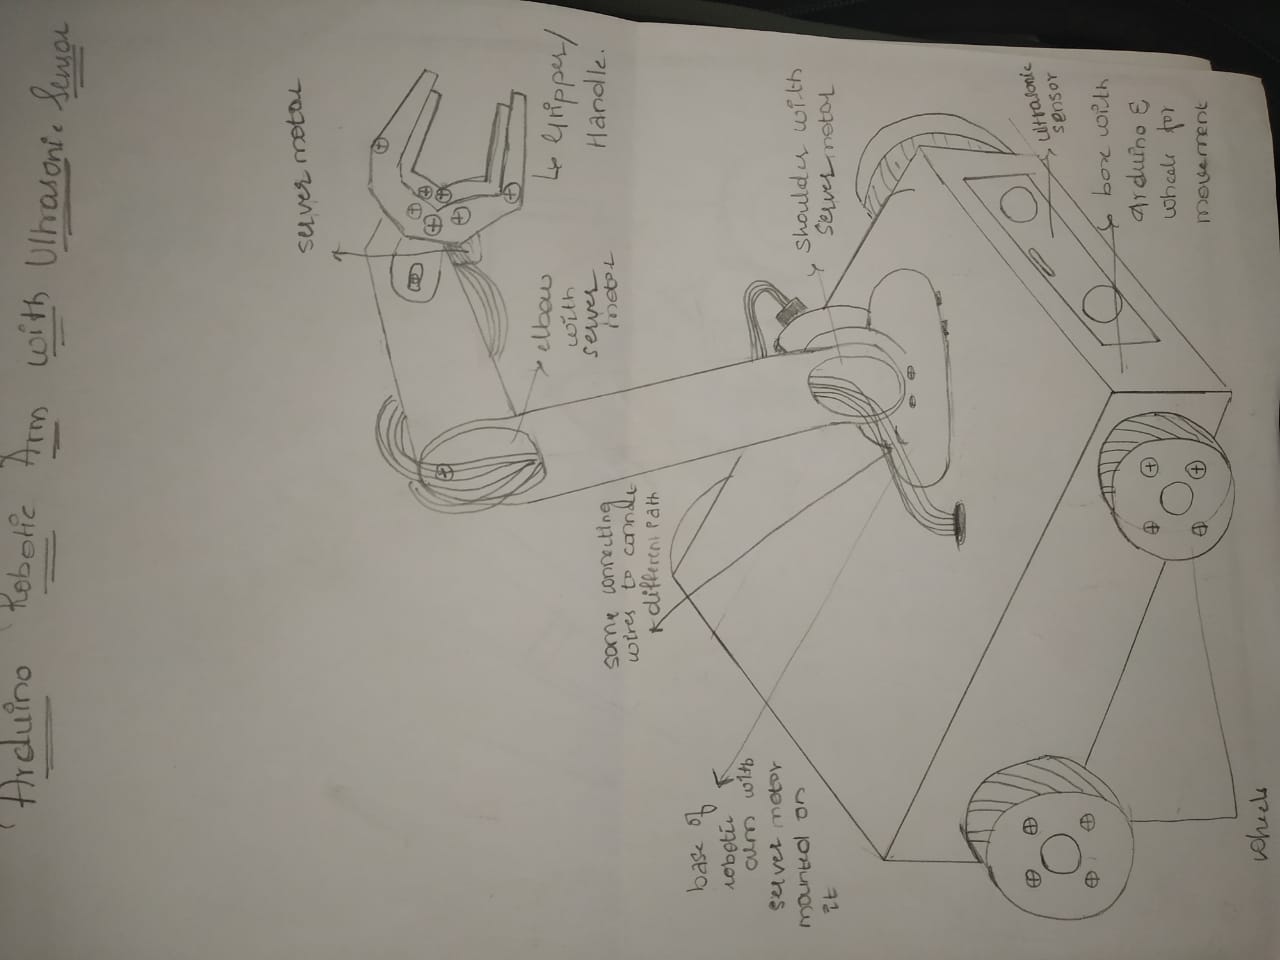 Arduino Robotic Arm with Ultrasonic Sensor
server motor
elbow
with
server
motor
↳ Gripper/
Handle.
some connecting
wires to connect
different Path
base of
robotic
arm with
server motor
mounted on
it
shoulder with
server motor
ultrasonic
sensor
box with
Arduino &
wheels for
movement
wheels